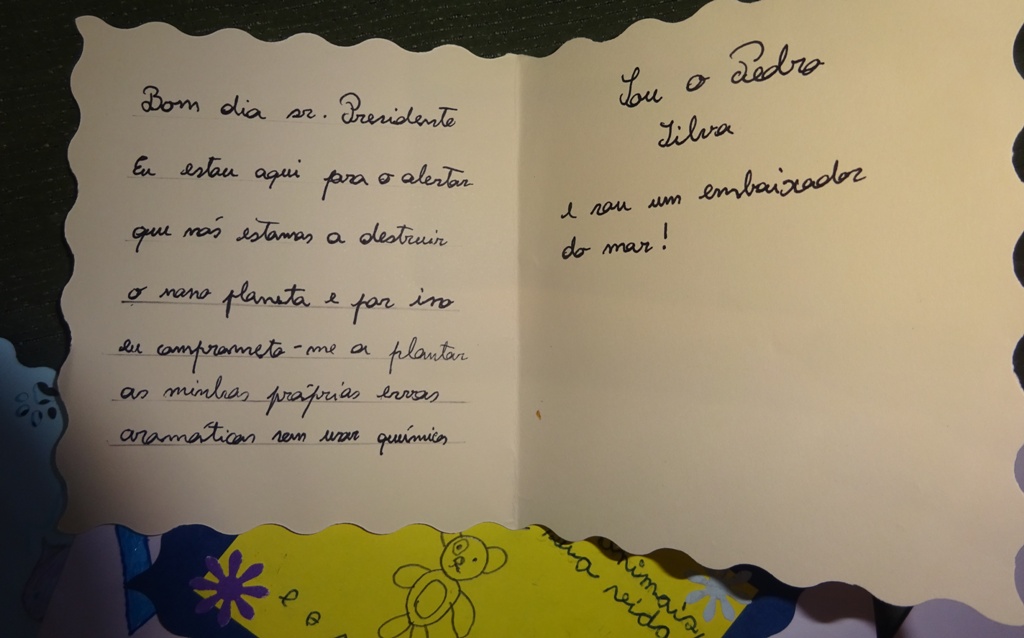 Bom dia sr. Presidente
Eu estou aqui para o alertar
que nós estamos a destruir
o nosso planeta e por isso
eu comprometo-me a plantar
as minhas próprias ervas
aromáticas sem usar químicos
Sou o Pedro
Silva
e sou um embaixador
do mar!
e o
animais,
vida